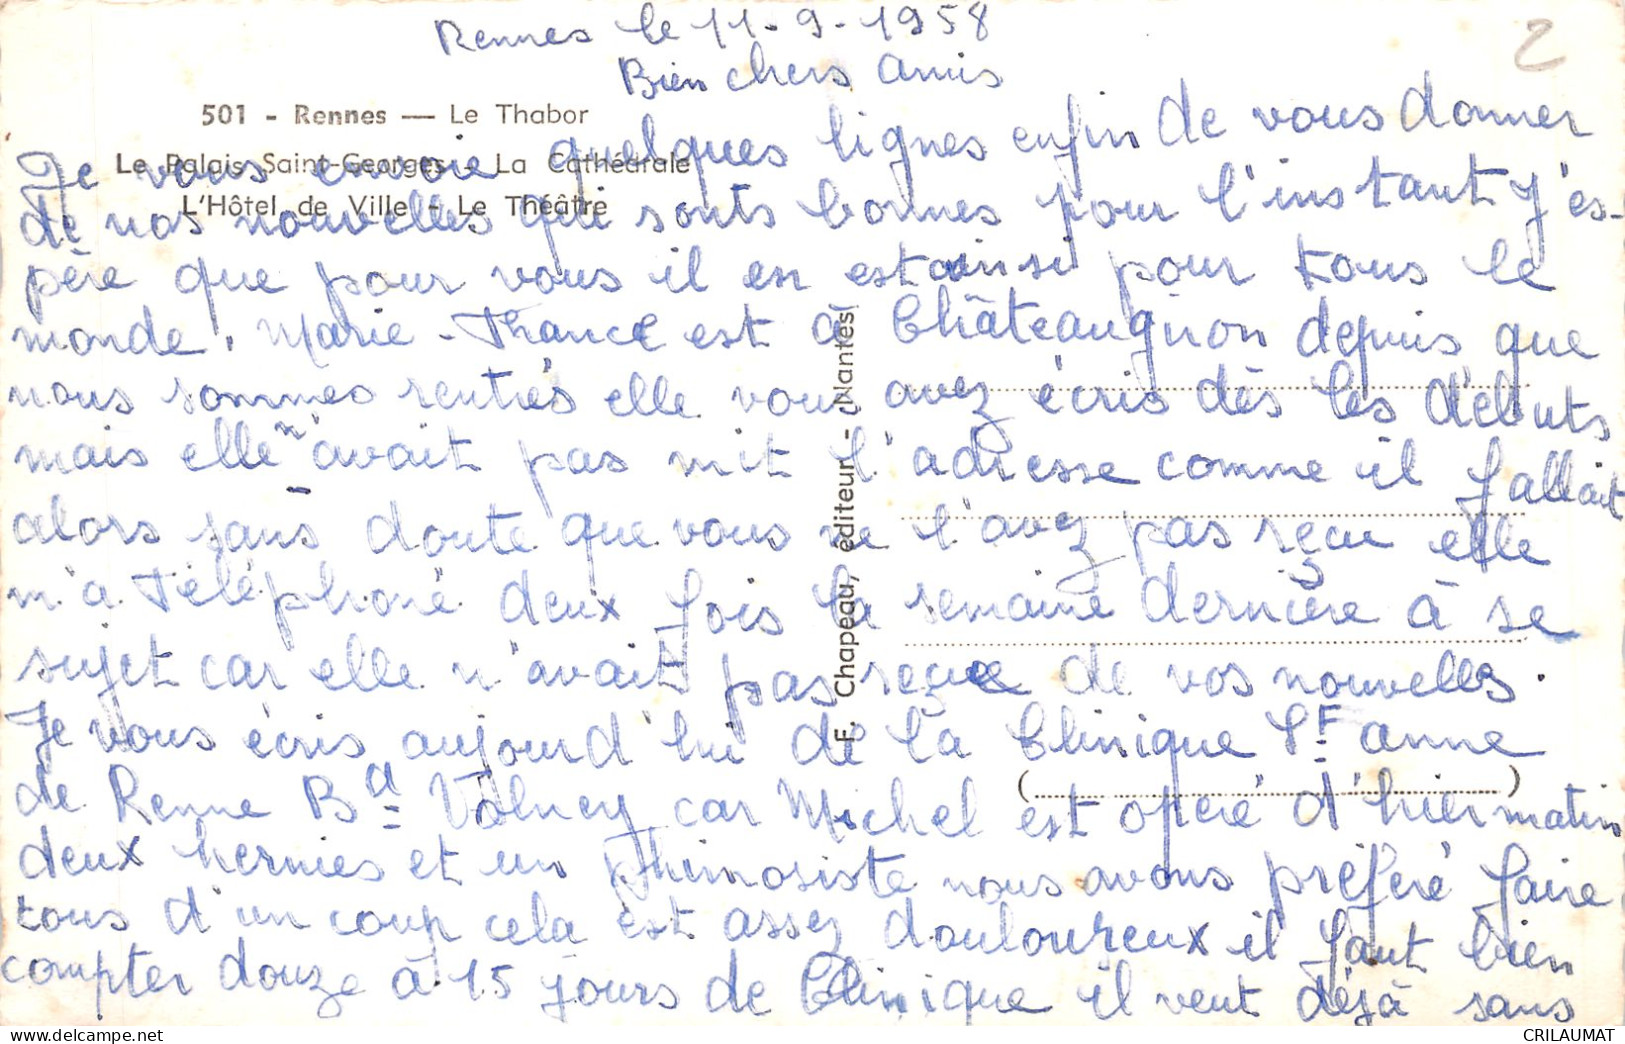 Rennes le 11-9-1958
2
Bien chers amis
501 - Rennes — Le Thabor
Le Palais Saint-Georges - La Cathédrale
L'Hôtel de Ville - Le Théâtre
Je vous envoie quelques lignes enfin de vous donner
de nos nouvelles qui sonts bonnes pour l'instant J'es-
père que pour vous il en est ainsi pour tous le
monde. Marie-France est à Châteaugiron depuis que
nous sommes rentrés elle vous avez écris dès les débuts
mais elle n'avait pas mit l'adresse comme il fallait
alors sans doute que vous ne l'avez pas reçue elle
m'a téléphoné deux fois la semaine dernière à se
sujet car elle n'avait pas reçue de vos nouvelles.
Je vous écris aujourd'hui de la Clinique St anne
de Renne Bd Volney car Michel est opéré d'hier matin
deux hernies et un phimosiste nous avons préféré faire
tous d'un coup cela est assez douloureux il faut bien
compter douze à 15 jours de Clinique il veut déjà sans
F. Chapeau, éditeur - Nantes
(
)
CRILAUMAT